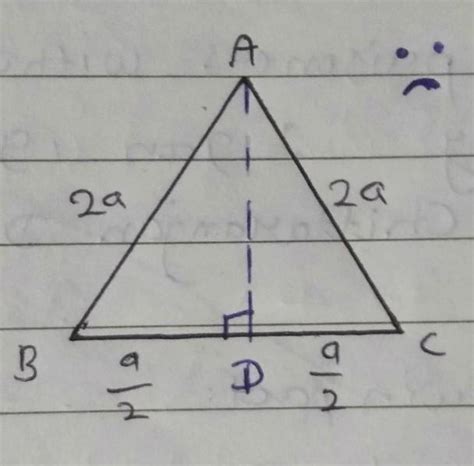 A
2a
2a
B
a/2
D
a/2
C